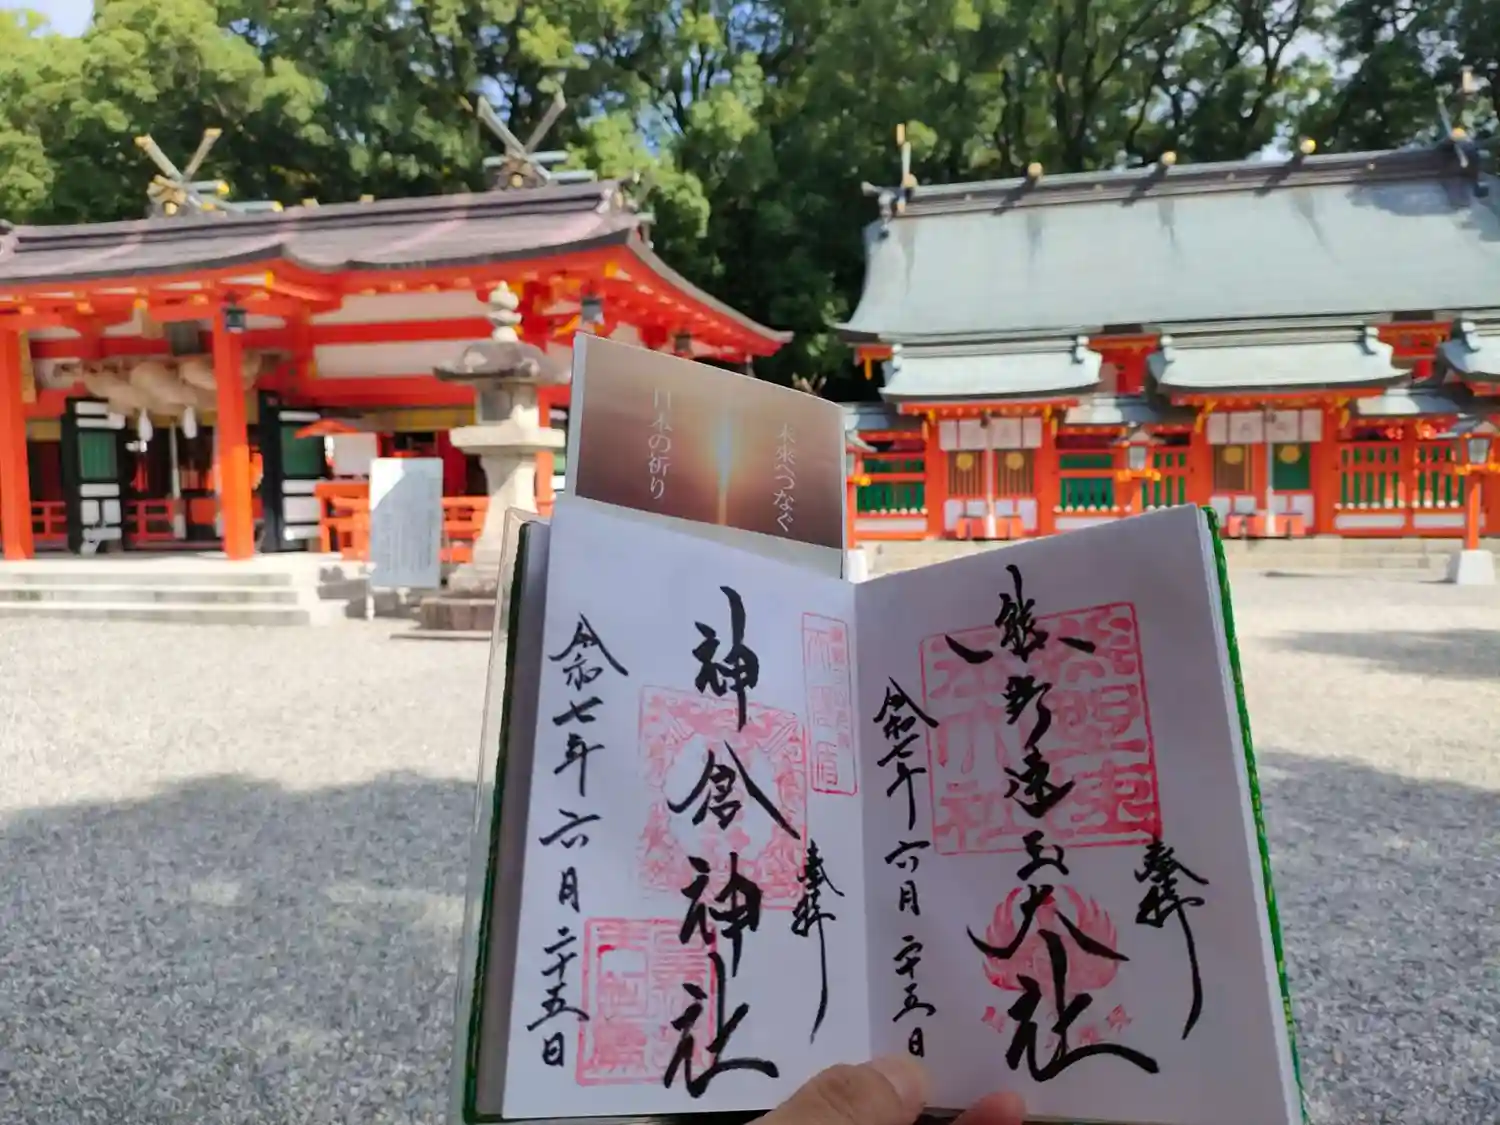 未来へつなぐ
日本の祈り
奉拝
熊野速玉大社
令和七年 六月 二十五日
奉拝
神倉神社
令和七年 六月 二十五日